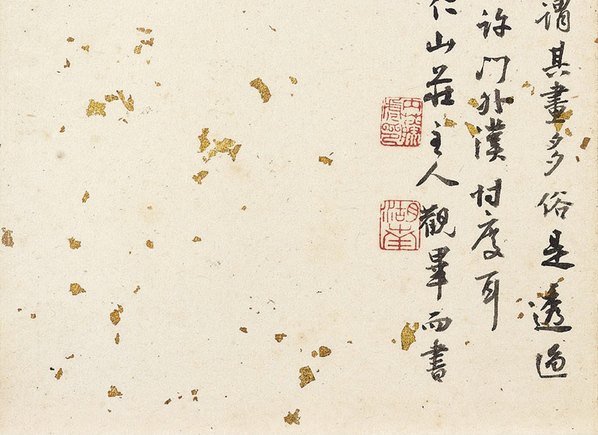 謂其畫多俗是透過
許門外漢忖度耳
仁山莊主人觀畢而書